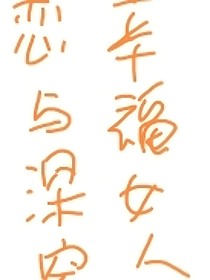 幸福女人
恋与深空